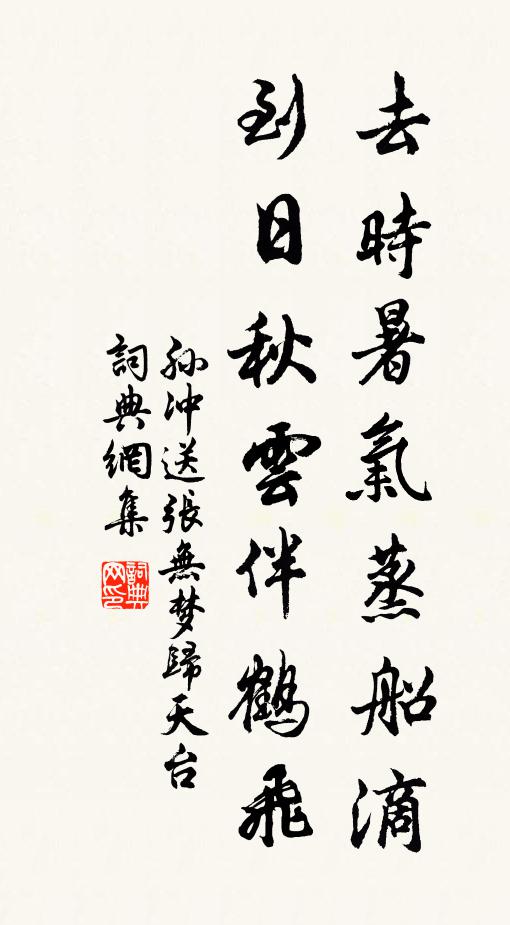 去時暑氣蒸船滴
到日秋雲伴鶴飛
孙沖送張無梦歸天台
詞典網集
詞典网印